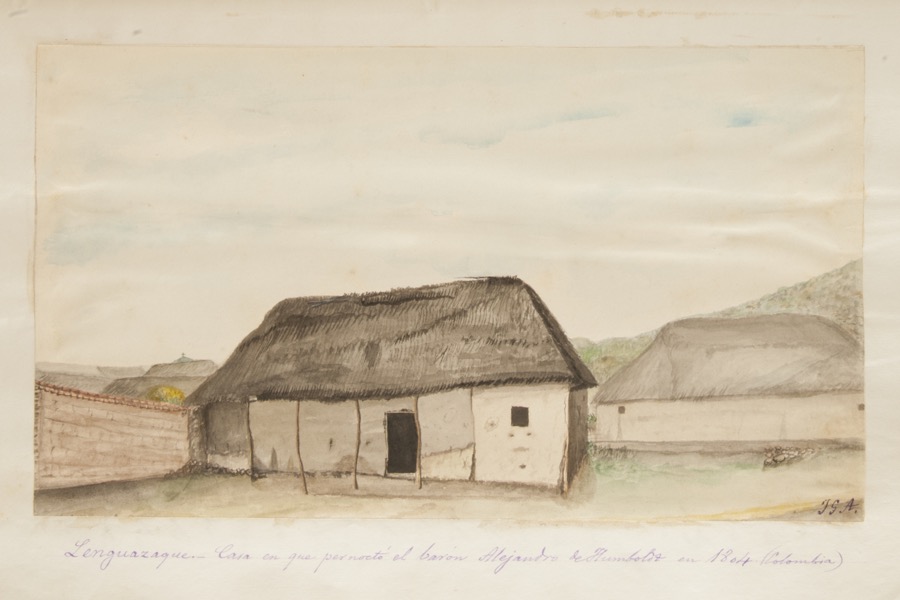 J G A.
Lenguazaque.- Casa en que pernoctó el barón Alejandro de Humboldt en 1804 (Colombia)